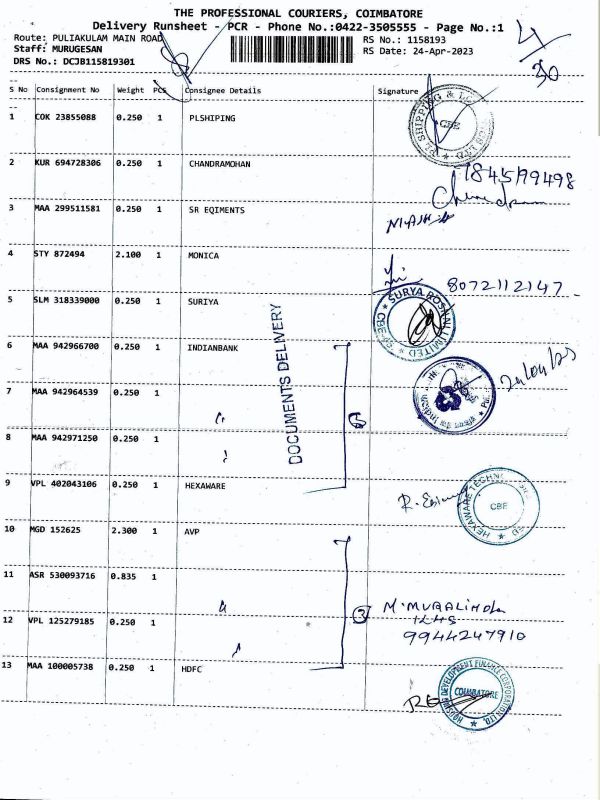 THE PROFESSIONAL COURIERS, COIMBATORE
Delivery Runsheet - PCR - Phone No.:0422-3505555 - Page No.:1
Route: PULIAKULAM MAIN ROAD
RS No.: 1158193
Staff: MURUGESAN
RS Date: 24-Apr-2023
DRS No.: DCJB115819301
4/30
S No Consignment No Weight PCS Consignee Details Signature
1 COK 23855088 0.250 1 PLSHIPING
CBE
2 KUR 694728306 0.250 1 CHANDRAMOHAN
3 MAA 299511581 0.250 1 SR EQIMENTS
4 STY 872494 2.100 1 MONICA
8072112147
5 SLM 318339000 0.250 1 SURIYA
SURYA ROSHNI LIMITED
CBE
DOCUMENTS DELIVERY
6 MAA 942966700 0.250 1 INDIANBANK
24/04/23
7 MAA 942964539 0.250 1
8 MAA 942971250 0.250 1
9 VPL 402043106 0.250 1 HEXAWARE
CBE
10 MGD 152625 2.300 1 AVP
11 ASR 530093716 0.835 1
3
12 VPL 125279185 0.250 1
9944247910
13 MAA 100005738 0.250 1 HDFC
HOUSING DEVELOPMENT FINANCE CORPORATION LTD.
COIMBATORE